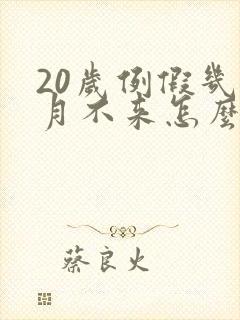 20歲例假幾
月不来怎麼
蔡良火